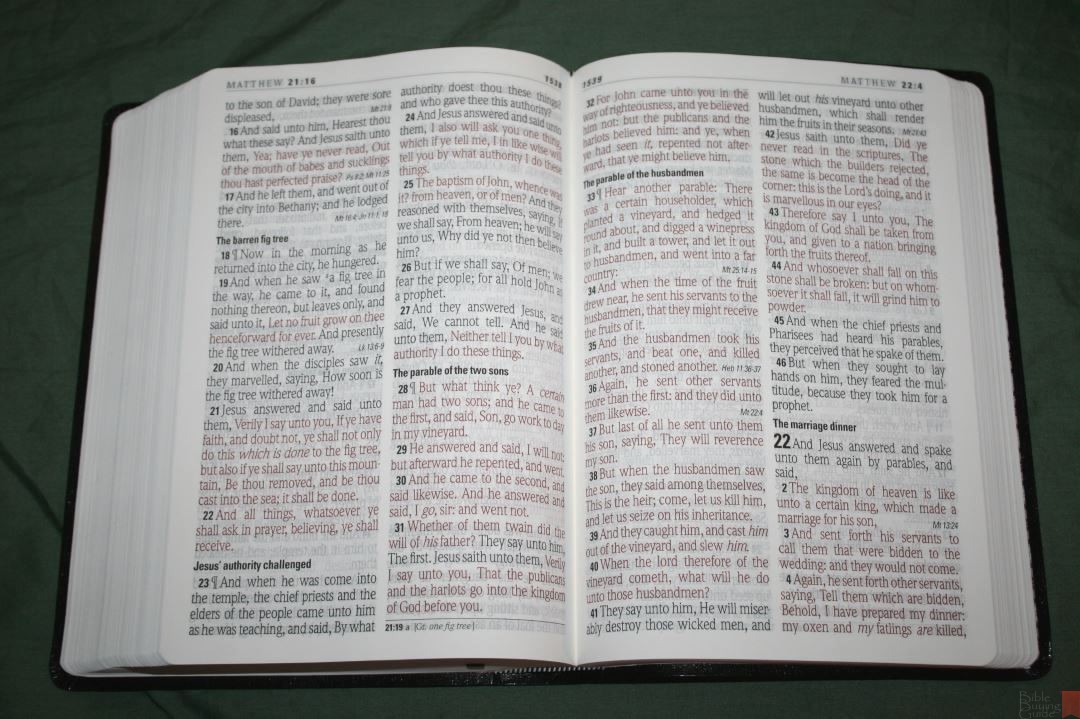 MATTHEW 21:16
1538
to the son of David; they were sore
displeased, Mt 21:9
16 And said unto him, Hearest thou
what these say? And Jesus saith unto
them, Yea; have ye never read, Out
of the mouth of babes and sucklings
thou hast perfected praise? Ps 8:2; Mt 11:25
17 And he left them, and went out of
the city into Bethany; and he lodged
there. Mt 16:4; Jn 11:1, 18
The barren fig tree
18 ¶ Now in the morning as he
returned into the city, he hungered.
19 And when he saw a fig tree in
the way, he came to it, and found
nothing thereon, but leaves only, and
said unto it, Let no fruit grow on thee
henceforward for ever. And presently
the fig tree withered away. Lk 13:6-9
20 And when the disciples saw it,
they marvelled, saying, How soon is
the fig tree withered away!
21 Jesus answered and said unto
them, Verily I say unto you, If ye have
faith, and doubt not, ye shall not only
do this which is done to the fig tree,
but also if ye shall say unto this moun-
tain, Be thou removed, and be thou
cast into the sea; it shall be done.
22 And all things, whatsoever ye
shall ask in prayer, believing, ye shall
receive.
Jesus' authority challenged
23 ¶ And when he was come into
the temple, the chief priests and the
elders of the people came unto him
as he was teaching, and said, By what
authority doest thou these things?
and who gave thee this authority?
24 And Jesus answered and said unto
them, I also will ask you one thing,
which if ye tell me, I in like wise will
tell you by what authority I do these
things.
25 The baptism of John, whence was
it? from heaven, or of men? And they
reasoned with themselves, saying, If
we shall say, From heaven; he will say
unto us, Why did ye not then believe
him?
26 But if we shall say, Of men; we
fear the people; for all hold John as
a prophet.
27 And they answered Jesus, and
said, We cannot tell. And he said
unto them, Neither tell I you by what
authority I do these things.
The parable of the two sons
28 ¶ But what think ye? A certain
man had two sons; and he came to
the first, and said, Son, go work to day
in my vineyard.
29 He answered and said, I will not:
but afterward he repented, and went.
30 And he came to the second, and
said likewise. And he answered and
said, I go, sir: and went not.
31 Whether of them twain did the
will of his father? They say unto him,
The first. Jesus saith unto them, Verily
I say unto you, That the publicans
and the harlots go into the kingdom
of God before you.
21:19 a [Gr. one fig tree]
1539
MATTHEW 22:4
32 For John came unto you in the
way of righteousness, and ye believed
him not: but the publicans and the
harlots believed him: and ye, when
ye had seen it, repented not after-
ward, that ye might believe him.
The parable of the husbandmen
33 ¶ Hear another parable: There
was a certain householder, which
planted a vineyard, and hedged it
round about, and digged a winepress
in it, and built a tower, and let it out
to husbandmen, and went into a far
country: Mt 25:14-15
34 And when the time of the fruit
drew near, he sent his servants to the
husbandmen, that they might receive
the fruits of it.
35 And the husbandmen took his
servants, and beat one, and killed
another, and stoned another. Heb 11:36-37
36 Again, he sent other servants
more than the first: and they did unto
them likewise. Mt 22:4
37 But last of all he sent unto them
his son, saying, They will reverence
my son.
38 But when the husbandmen saw
the son, they said among themselves,
This is the heir; come, let us kill him,
and let us seize on his inheritance.
39 And they caught him, and cast him
out of the vineyard, and slew him.
40 When the lord therefore of the
vineyard cometh, what will he do
unto those husbandmen?
41 They say unto him, He will miser
ably destroy those wicked men, and
will let out his vineyard unto other
husbandmen, which shall render
him the fruits in their seasons. Mt 21:43
42 Jesus saith unto them, Did ye
never read in the scriptures, The
stone which the builders rejected,
the same is become the head of the
corner: this is the Lord's doing, and it
is marvellous in our eyes?
43 Therefore say I unto you, The
kingdom of God shall be taken from
you, and given to a nation bringing
forth the fruits thereof.
44 And whosoever shall fall on this
stone shall be broken: but on whom-
soever it shall fall, it will grind him to
powder.
45 And when the chief priests and
Pharisees had heard his parables,
they perceived that he spake of them.
46 But when they sought to lay
hands on him, they feared the mul-
titude, because they took him for a
prophet.
The marriage dinner
22 And Jesus answered and spake
unto them again by parables, and
said,
2 The kingdom of heaven is like
unto a certain king, which made a
marriage for his son, Mt 13:24
3 And sent forth his servants to
call them that were bidden to the
wedding: and they would not come.
4 Again, he sent forth other servants,
saying, Tell them which are bidden,
Behold, I have prepared my dinner:
my oxen and my fatlings are killed,
Bible
Buying
Guide